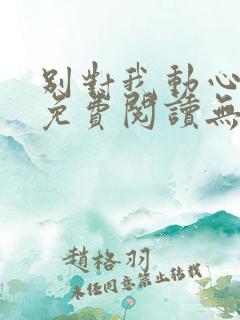 別對我動心
免費閱讀無
趙格羽
未經同意禁止轉載